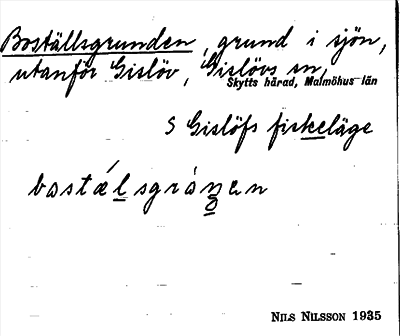 Boställsgrunden, grund i sjön,
utanför Gislöv, Gislövs sn,
Skytts härad, Malmöhus län
S Gislöfs fiskeläge
bostǽlsgránn̥en
NILS NILSSON 1935